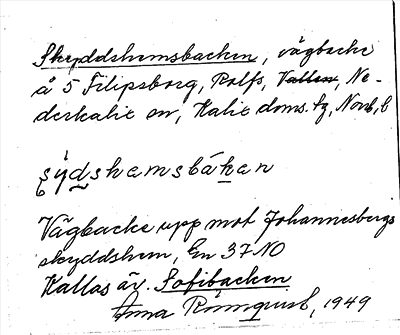 Skyddshemsbacken, vägbacke
å 5 Filipsborg, Rolfs, Vallen, Ne-
derkalix sn, Kalix doms. tg, Norrb. l
šýdshemsbáken
Vägbacke upp mot Johannesbergs
skyddshem, En 37 NO
Kallas äv. Sofibacken
Anna Rönnqvist, 1949